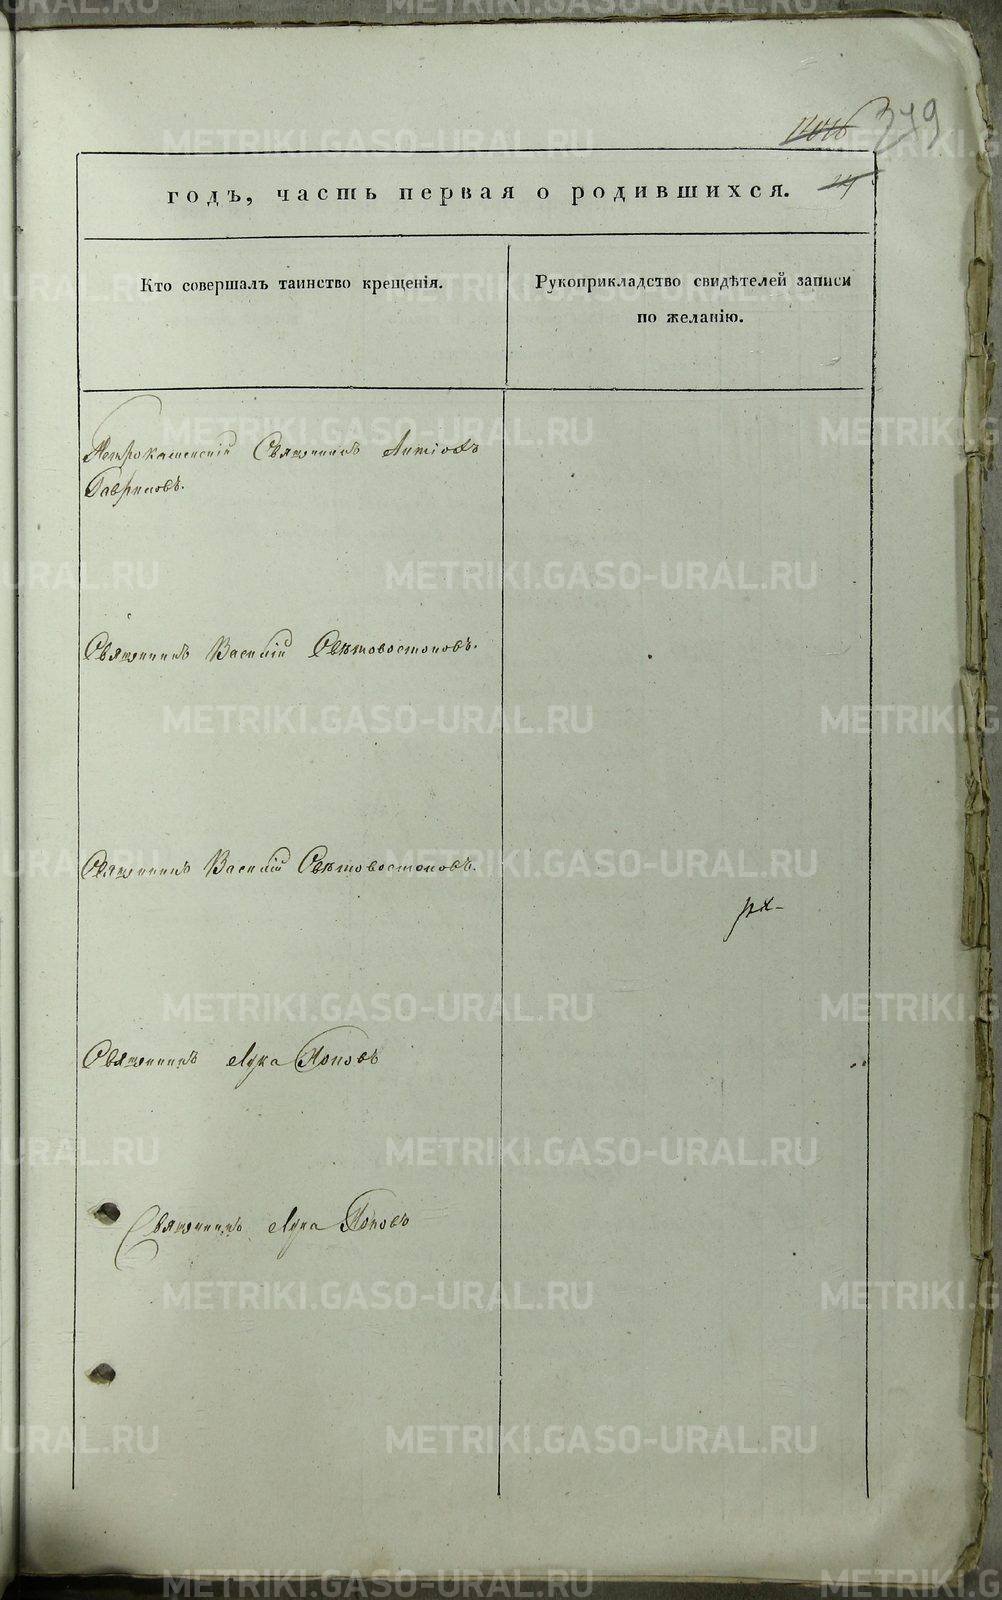 379
годъ, часть первая о родившихся.
Кто совершалъ таинство крещенія.
Рукоприкладство свидѣтелей записи
по желанію.
Петрокаменскій Священникъ Антіохъ
Гавриловъ.
Священникъ Василій Свѣтовостоковъ.
Священникъ Василій Свѣтовостоковъ.
Священникъ Лука Поповъ
Священникъ Лука Поповъ
METRIKI.GASO-URAL.RU